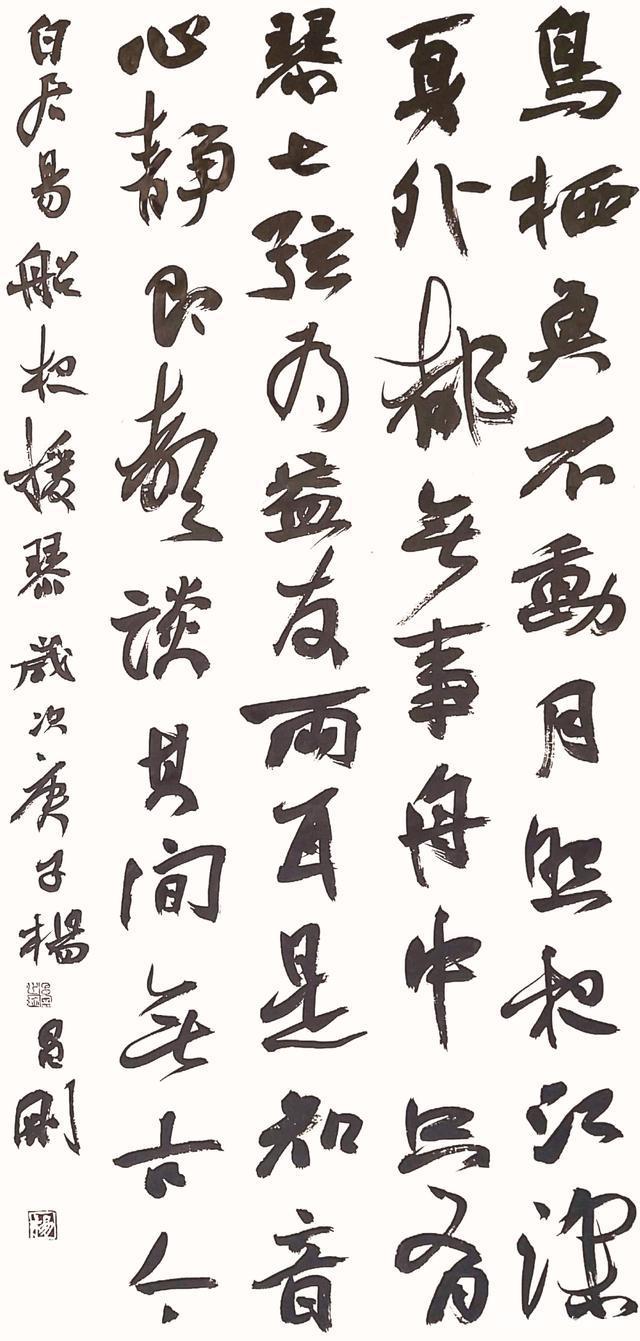 鳥栖魚不動月照夜江深
身外都無事舟中只有
琴七弦為益友兩耳是知音
心靜即聲談其間無古今
白居易船夜援琴 歲次庚子楊昌剛
楊